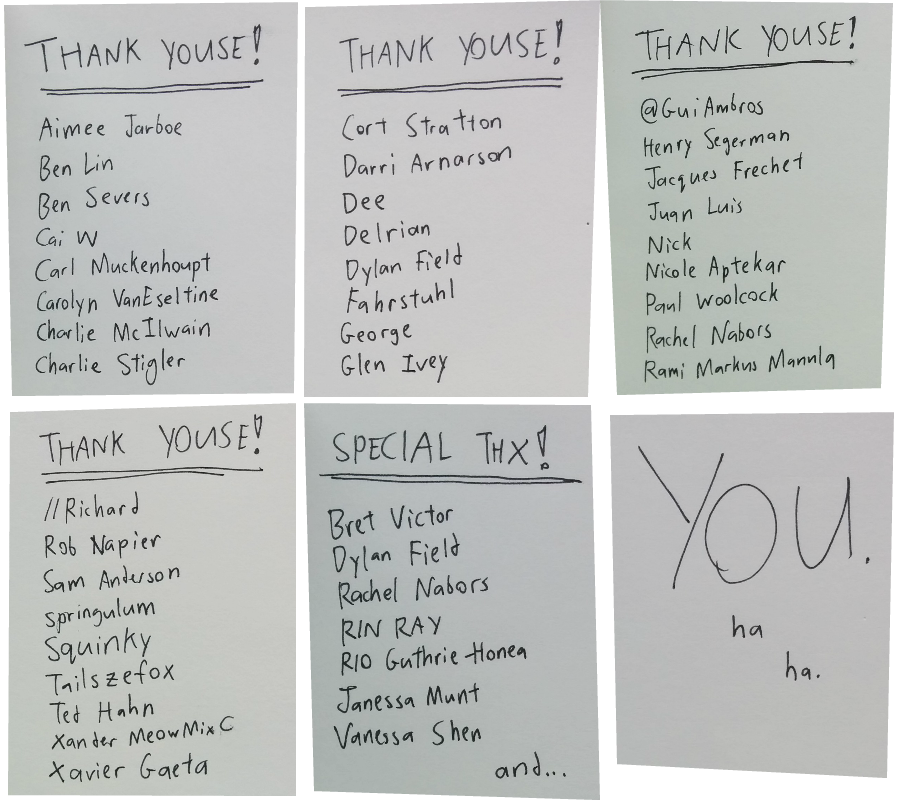 THANK YOUSE!
Aimee Jarboe
Ben Lin
Ben Severs
Cai W
Carl Muckenhoupt
Carolyn VanEseltine
Charlie McIlwain
Charlie Stigler
THANK YOUSE!
Cort Stratton
Darri Arnarson
Dee
Delrian
Dylan Field
Fahrstuhl
George
Glen Ivey
THANK YOUSE!
@GuiAmbros
Henry Segerman
Jacques Frechet
Juan Luis
Nick
Nicole Aptekar
Paul Woolcock
Rachel Nabors
Rami Markus Mannla
THANK YOUSE!
//Richard
Rob Napier
Sam Anderson
springulum
Squinky
Tailszefox
Ted Hahn
Xander MeowMix C
Xavier Gaeta
SPECIAL THX!
Bret Victor
Dylan Field
Rachel Nabors
RIN RAY
RIO Guthrie-Honea
Janessa Munt
Vanessa Shen
and...
YOU.
ha
ha.